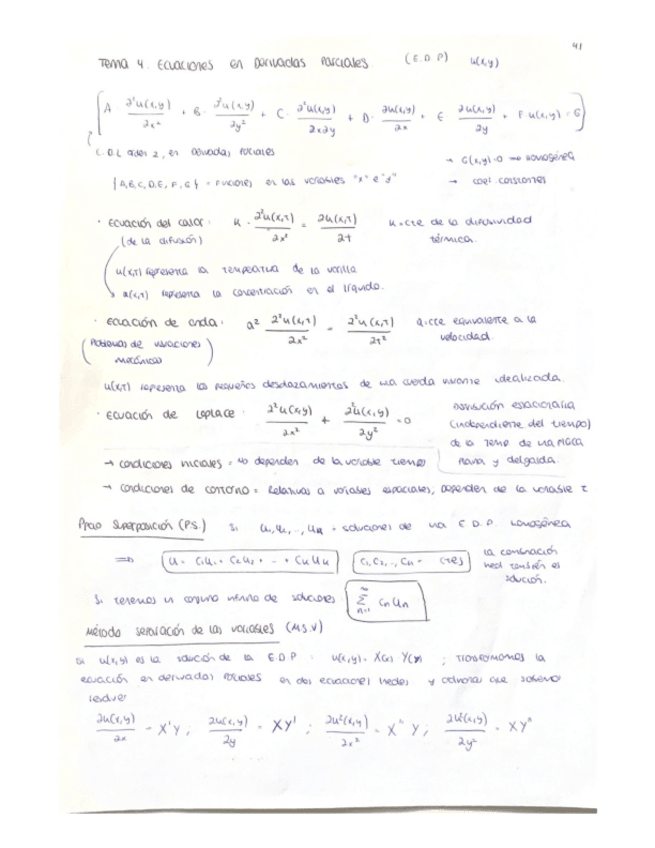 41
Tema 4. Ecuaciones en Derivadas Parciales (E.D.P) u(x,y)
[A · ∂²u(x,y)/∂x² + B · ∂²u(x,y)/∂y² + C · ∂²u(x,y)/∂x∂y + D · ∂u(x,y)/∂x + E ∂u(x,y)/∂y + F · u(x,y) = G]
E.D.L orden 2, en Derivadas Parciales → G(x,y)=0 ⇒ homogénea
{A,B,C,D,E,F,G} = Funciones en las variables "x" e "y" → coef. constantes
· Ecuación del calor: K · ∂²u(x,t)/∂x² = ∂u(x,t)/∂t K = cte de la difusividad
(de la difusión) térmica.
u(x,t) representa la temperatura de la varilla
u(x,t) representa la concentración en el líquido.
· Ecuación de onda: a² ∂²u(x,t)/∂x² = ∂²u(x,t)/∂t² a = cte equivalente a la
(Problemas de vibraciones velocidad.
mecánicas)
u(x,t) representa los pequeños desplazamientos de una cuerda vibrante idealizada.
· Ecuación de Laplace: ∂²u(x,y)/∂x² + ∂²u(x,y)/∂y² = 0 Distribución estacionaria
(independiente del tiempo)
de la Temp de una placa
plana y delgada.
→ Condiciones iniciales = No dependen de la variable tiempo
→ Condiciones de contorno = Relativas a variables espaciales, dependen de la variable t
Ppio Superposición (P.S.) Si u₁, u₂, .., uₙ = soluciones de una E.D.P homogénea
⇒ u = C₁u₁ + C₂u₂ + ... + Cₙuₙ C₁, C₂, .., Cₙ = ctes la combinación
lineal también es
solución.
Si tenemos un conjunto infinito de soluciones ∑ₙ₌₁^∞ Cₙuₙ
Método separación de las variables (M.S.V)
Si u(x,y) es la solución de la E.D.P = u(x,y) = X(x) Y(y) ; Transformamos la
ecuación en derivadas parciales en dos ecuaciones lineales y ordinarias que sabemos
resolver
∂u(x,y)/∂x = X'Y ; ∂u(x,y)/∂y = XY' ; ∂u²(x,y)/∂x² = X''Y ; ∂u²(x,y)/∂y² = XY''